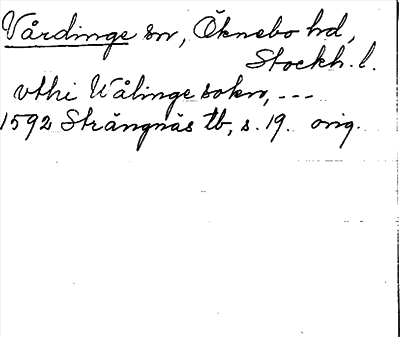 Vårdinge sn, Öknebo hd,
Stockh. l.
vthi Wålinge sokn, ---
1592 Strängnäs tb, s. 19. orig.